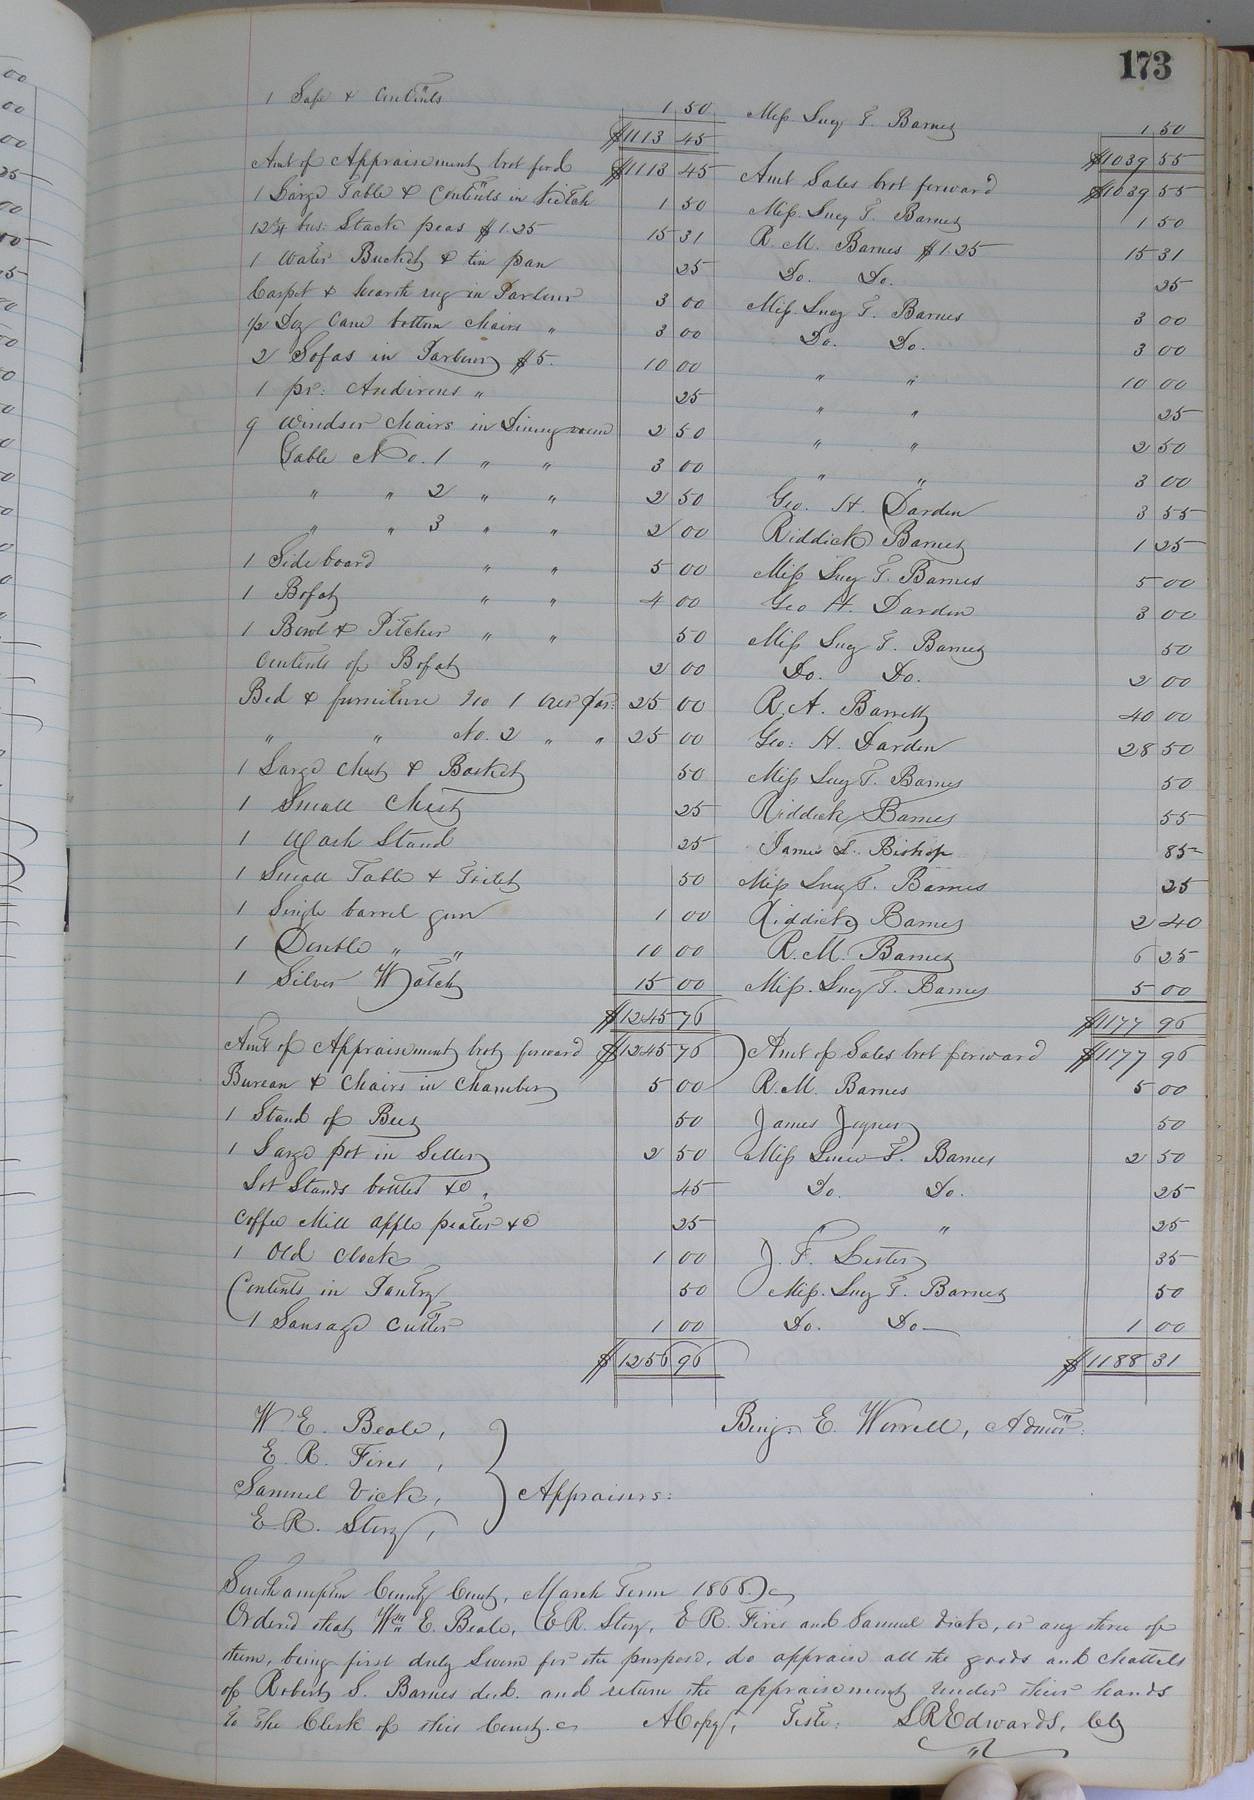 173
1 Safe & Contents 1 50 Miss Lucy T. Barnes 1 50
$1113 45 $1039 55
Amt of Appraisement brot ford $1113 45 Amt Sales brot forward $1039 55
1 Large Table & Contents in 1 50 Miss Lucy T. Barnes 1 50
12¼ bus: Stack peas $1.25 15 31 R. M. Barnes $1.25 15 31
1 Water Bucket & tin pan 25 Do. Do. 25
Carpet & hearth rug in Parlour 3 00 Miss Lucy T. Barnes 3 00
½ Doz Cane bottom chairs " 3 00 Do. Do. 3 00
2 Sofas in Parlour $5. 10 00 " " 10 00
1 pr: Andirons " 25 " " 25
9 Windsor Chairs in Dining room 2 50 " " 2 50
Table No. 1 " " 3 00 " " 3 00
" " 2 " " 2 50 Geo. H. Darden 3 55
" " 3 " " 2 00 Riddick Barnes 1 25
1 Side board " " 5 00 Miss Lucy T. Barnes 5 00
1 Bofat " " 4 00 Geo H. Darden 3 00
1 Bowl & Pitcher " " 50 Miss Lucy T. Barnes 50
Contents of Bofat 2 00 Do. Do. 2 00
Bed & furniture No 1 over Par: 25 00 R. A. Barrett 40 00
" " No. 2 " " 25 00 Geo: H. Darden 28 50
1 Large Chest & Basket 50 Miss Lucy T. Barnes 50
1 Small Chest 25 Riddick Barnes 55
1 Wash Stand 25 James T. Bishop 85
1 Small Table & Toilet 50 Miss Lucy T. Barnes 25
1 Single barrel gun 1 00 Riddick Barnes 2 40
1 Double " " 10 00 R. M. Barnes 6 25
1 Silver Watch 15 00 Miss. Lucy T. Barnes 5 00
$1245 76 $1177 96
Amt of Appraisement brot forward $1245 76 Amt of Sales brot forward $1177 96
Bureau & Chairs in Chamber 5 00 R. M. Barnes 5 00
1 Stand of Bees 50 James Joyner 50
1 Large pot in Seller 2 50 Miss Lucie T. Barnes 2 50
Lot Stands bottles &c " 45 Do. Do. 25
Coffee Mill apple pealer &c 25 " " 25
1 Old Clock 1 00 J. F. Lester 35
Contents in Pantry 50 Miss. Lucy T. Barnes 50
1 Sausage Cutter 1 00 Do. Do 1 00
$1256 96 $1188 31
W. E. Beale, Benj: E. Worrell, Admor:
E. R. Fires,
Samuel Vick, Appraisers:
E. R. Story,
Southampton County Court, March Term 1866.
Ordered that Wm E. Beale, E R. Story, E R. Fires and Samuel Vick, or any three of
them, being first duly Sworn for the purpose, do appraise all the goods and chattels
of Robert S. Barnes decd. and return the appraisement under their hands
to the Clerk of this Court.
A Copy, Teste: L R Edwards, Clk